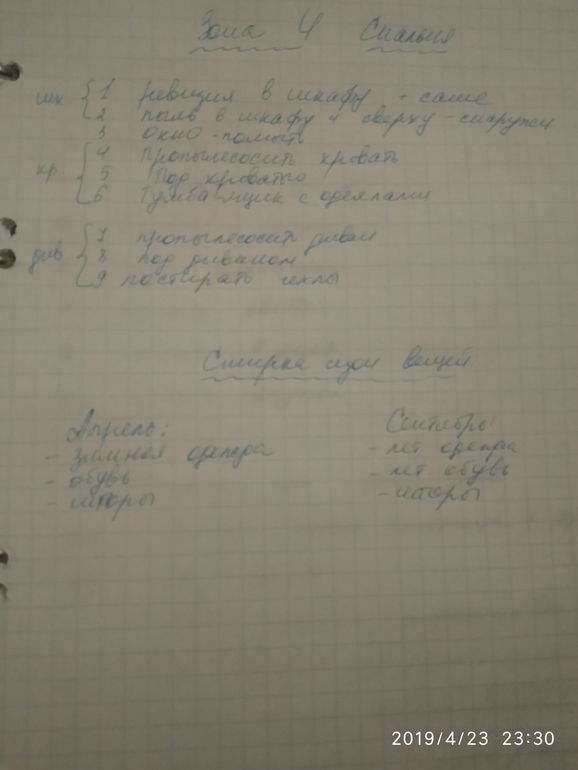 Зона 4 Спальня
шк { 1 ревизия в шкафу + саше
2 пыль в шкафу и сверху - снаружи
3 окно - помыть
кр { 4 пропылесосить кровать
5 Под кроватью
6 Тумба ящик с одеялами
див { 7 пропылесосить диван
8 под диваном
9 постирать чехлы
Стирка сезон вещей
Апрель: Сентябрь:
- зимняя одежда - лет одежда
- обувь - лет. обувь
- шторы - шторы
2019/4/23 23:30